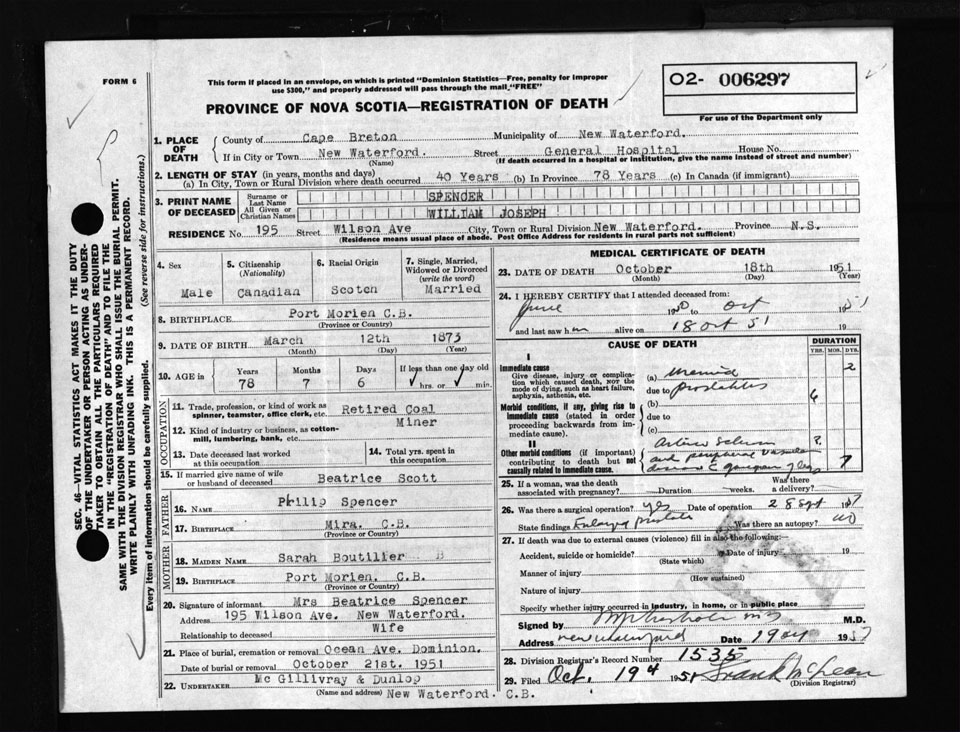 FORM 6
This form if placed in an envelope, on which is printed "Dominion Statistics—Free, penalty for improper
use $300," and properly addressed will pass through the mail "FREE"
PROVINCE OF NOVA SCOTIA—REGISTRATION OF DEATH
02- 006297
For use of the Department only
SEC. 46—VITAL STATISTICS ACT MAKES IT THE DUTY
OF THE UNDERTAKER OR PERSON ACTING AS UNDER-
TAKER TO OBTAIN ALL THE PARTICULARS REQUIRED
IN THE "REGISTRATION OF DEATH" AND TO FILE THE
SAME WITH THE DIVISION REGISTRAR WHO SHALL ISSUE THE BURIAL PERMIT.
WRITE PLAINLY WITH UNFADING INK. THIS IS A PERMANENT RECORD.
Every item of information should be carefully supplied. (See reverse side for instructions.)
1. PLACE OF DEATH County of Cape Breton Municipality of New Waterford.
If in City or Town New Waterford. Street General Hospital House No.
(Name) (If death occurred in a hospital or institution, give the name instead of street and number)
2. LENGTH OF STAY (in years, months and days)
(a) In City, Town or Rural Division where death occurred 40 Years (b) In Province 78 Years (c) In Canada (if immigrant)
3. PRINT NAME OF DECEASED Surname or Last Name SPENCER
All Given or Christian Names WILLIAM JOSEPH
RESIDENCE No. 195 Street Wilson Ave City, Town or Rural Division New Waterford. Province N.S.
(Residence means usual place of abode. Post Office Address for residents in rural parts not sufficient)
4. Sex Male
5. Citizenship (Nationality) Canadian
6. Racial Origin Scotch
7. Single, Married, Widowed or Divorced (write the word) Married
8. BIRTHPLACE Port Morien C.B.
(Province or Country)
9. DATE OF BIRTH March 12th 1873
(Month) (Day) (Year)
10. AGE in Years Months Days If less than one day old
78 7 6 hrs. or min.
OCCUPATION
11. Trade, profession, or kind of work as spinner, teamster, office clerk, etc. Retired Coal
12. Kind of industry or business, as cotton-mill, lumbering, bank, etc. Miner
13. Date deceased last worked at this occupation
14. Total yrs. spent in this occupation
15. If married give name of wife or husband of deceased Beatrice Scott
FATHER
16. NAME Philip Spencer
17. BIRTHPLACE Mira. C.B.
(Province or Country)
MOTHER
18. MAIDEN NAME Sarah Boutilier B
19. BIRTHPLACE Port Morien. C.B.
(Province or Country)
20. Signature of informant Mrs Beatrice Spencer
Address 195 Wilson Ave. New Waterford.
Relationship to deceased Wife
21. Place of burial, cremation or removal Ocean Ave. Dominion.
Date of burial or removal October 21st. 1951
22. UNDERTAKER Mc Gillivray & Dunlop
(Name and address) New Waterford. C.B.
MEDICAL CERTIFICATE OF DEATH
23. DATE OF DEATH October 18th 1951
(Month) (Day) (Year)
24. I HEREBY CERTIFY that I attended deceased from:
June 19 to Oct 19
and last saw h im alive on 18 Oct 51 19
CAUSE OF DEATH DURATION
YRS. MOS. DYS.
I
Immediate cause
Give disease, injury or complication which caused death, NOT the mode of dying, such as heart failure, asphyxia, asthenia, etc.
(a) Uremia 2
due to prostatitis 6
Morbid conditions, if any, giving rise to immediate cause (stated in order proceeding backwards from immediate cause).
(b)
due to
(c)
II
Other morbid conditions (if important) contributing to death but not causally related to immediate cause.
Arterio ?
and peripheral vascular 7
disease
25. If a woman, was the death associated with pregnancy? Duration weeks. Was there a delivery?
26. Was there surgical operation? yes Date of operation 28 Sept 19
State findings Enlarged prostate Was there an autopsy? no
27. If death was due to external causes (violence) fill in also the following:
Accident, suicide or homicide? Date of injury 19
(State which)
Manner of injury
(How sustained)
Nature of injury
Specify whether injury occurred in industry, in home, or in public place
Signed by M.D.
Address New Waterford Date 19 Oct 19
28. Division Registrar's Record Number 1535
29. Filed Oct. 19th 1951 Frank McLean
(Division Registrar)